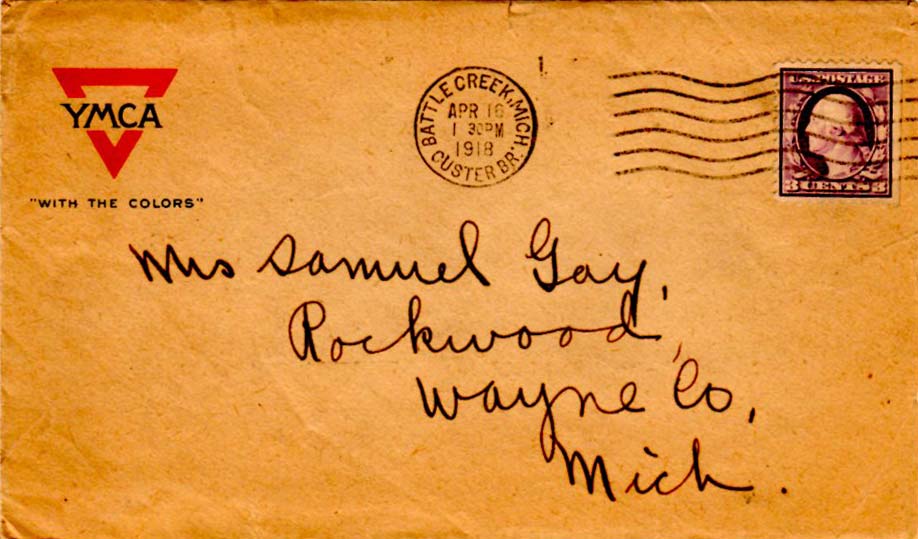 YMCA
"WITH THE COLORS"
BATTLE CREEK, MICH.
APR 16
1 30PM
1918
CUSTER BR.
U.S. POSTAGE
3 CENTS 3
Mrs Samuel Gay,
Rockwood,
Wayne Co,
Mich.